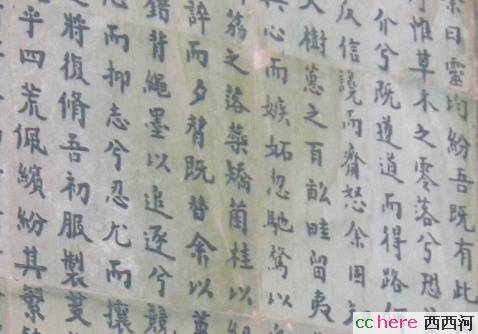 曰靈均紛吾既有此
惟草木之零落兮恐
介兮既道道而得路
反信讒而齋怒余固知
樹蕙之百畝畦留夷
心而嫉妬忽馳騖以
荔之落蘂矯菌桂以
誶而夕替既替余以
錯背繩墨以追逐兮競
心而抑志兮忍尤而攘
將復脩吾初服製芰
乎四荒佩繽紛其繁
cchere 西西河